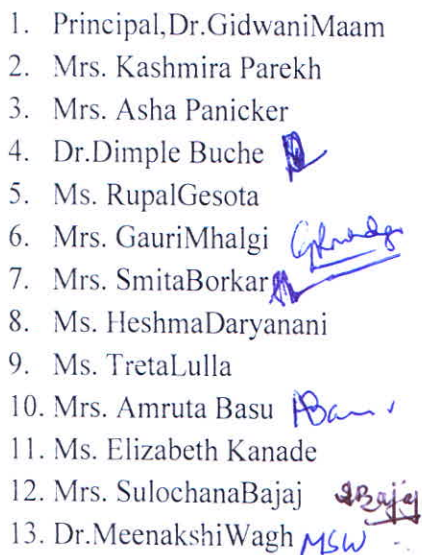 1. Principal,Dr.GidwaniMaam
2. Mrs. Kashmira Parekh
3. Mrs. Asha Panicker
4. Dr.Dimple Buche
5. Ms. RupalGesota
6. Mrs. GauriMhalgi
7. Mrs. SmitaBorkar
8. Ms. HeshmaDaryanani
9. Ms. TretaLulla
10. Mrs. Amruta Basu
11. Ms. Elizabeth Kanade
12. Mrs. SulochanaBajaj SBajaj
13. Dr.MeenakshiWagh MSW